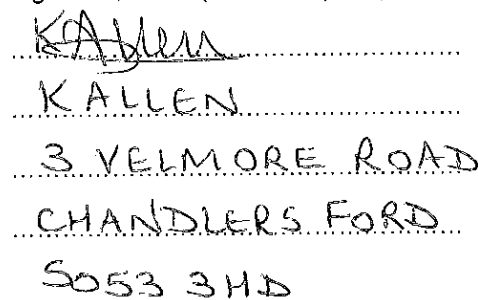 KAllen
K ALLEN
3 VELMORE ROAD
CHANDLERS FORD
SO53 3HD